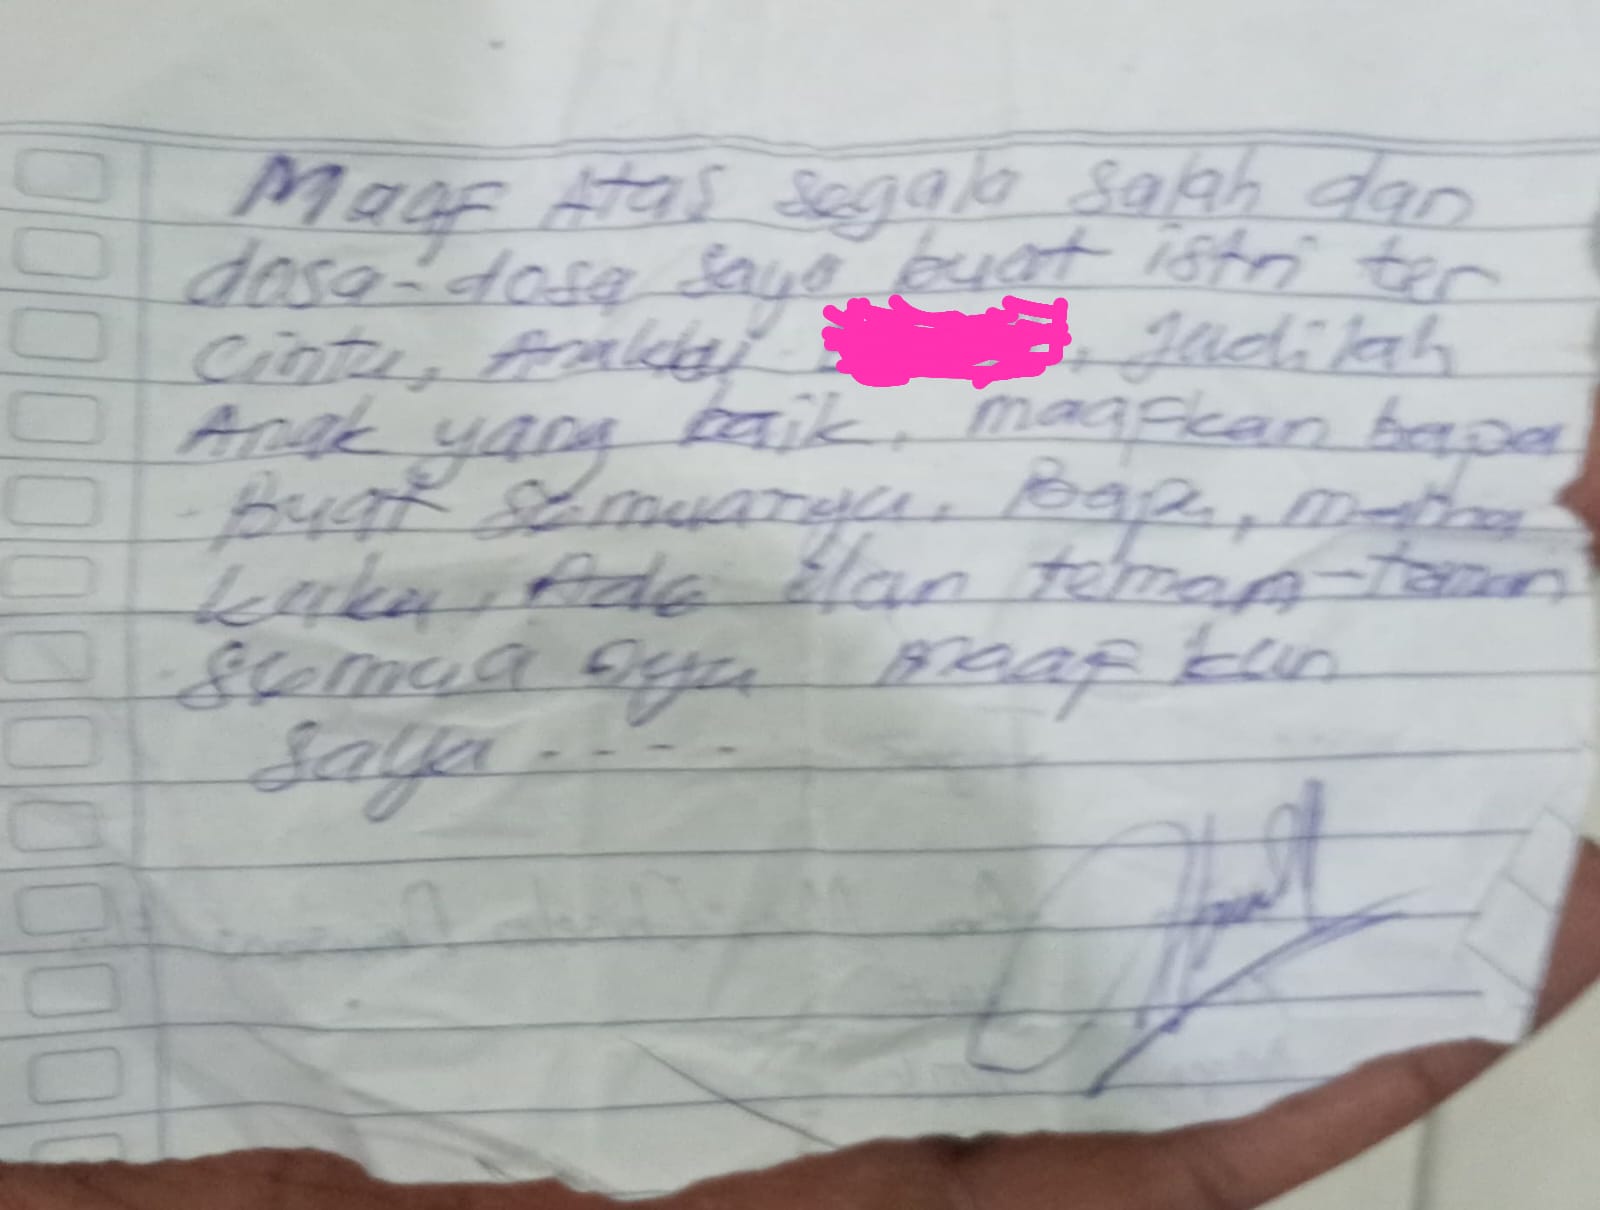 Maaf Atas segala salah dan
dosa-dosa saya buat istri ter
cinta, Anakku , Jadilah
Anak yang baik, maafkan bapa
Buat semuanya. Bapa, mama
kaka, Ade dan teman-teman
semua nya maaf kan
saya - - - -